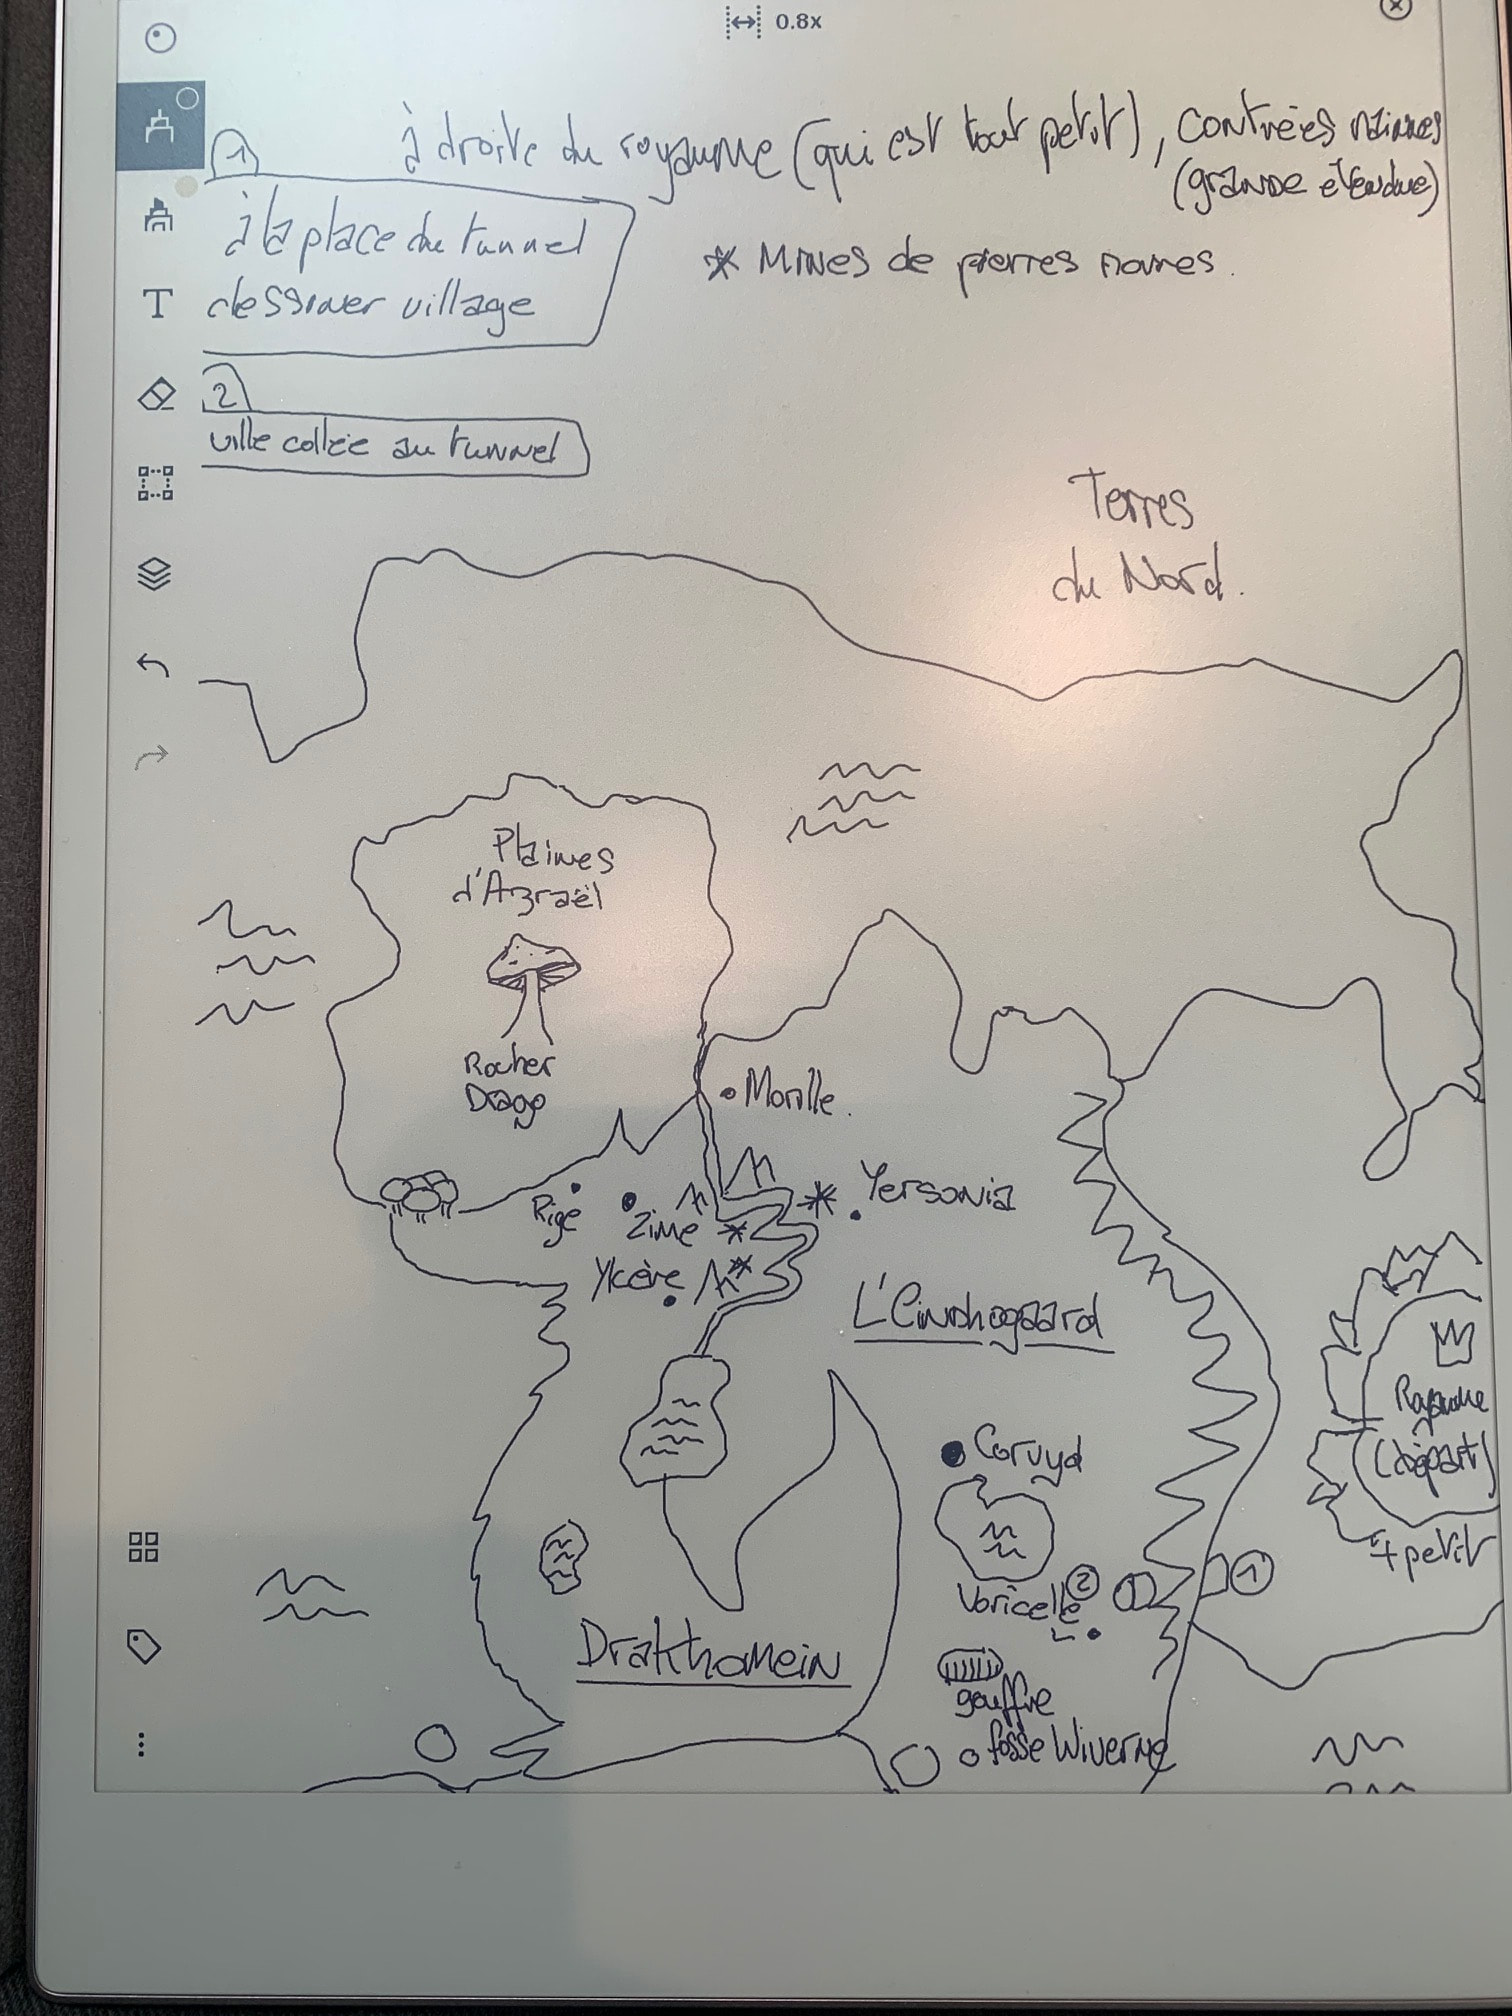 0.8x
1
à droite du royaume (qui est tout petit), contrées naines
(grande étendue)
à la place du tunnel
dessiner village
* Mines de pierres noires.
T
2
ville collée au tunnel
Terres
du Nord.
Plaines
d'Azraël
Rocher
Morille.
Rige
Zime
Yersonia
Ykère
Royaume
(départ)
+ petit
Coruyd
Voricelle
2
1
Drakthomein
gouffre
fosse Wiverne